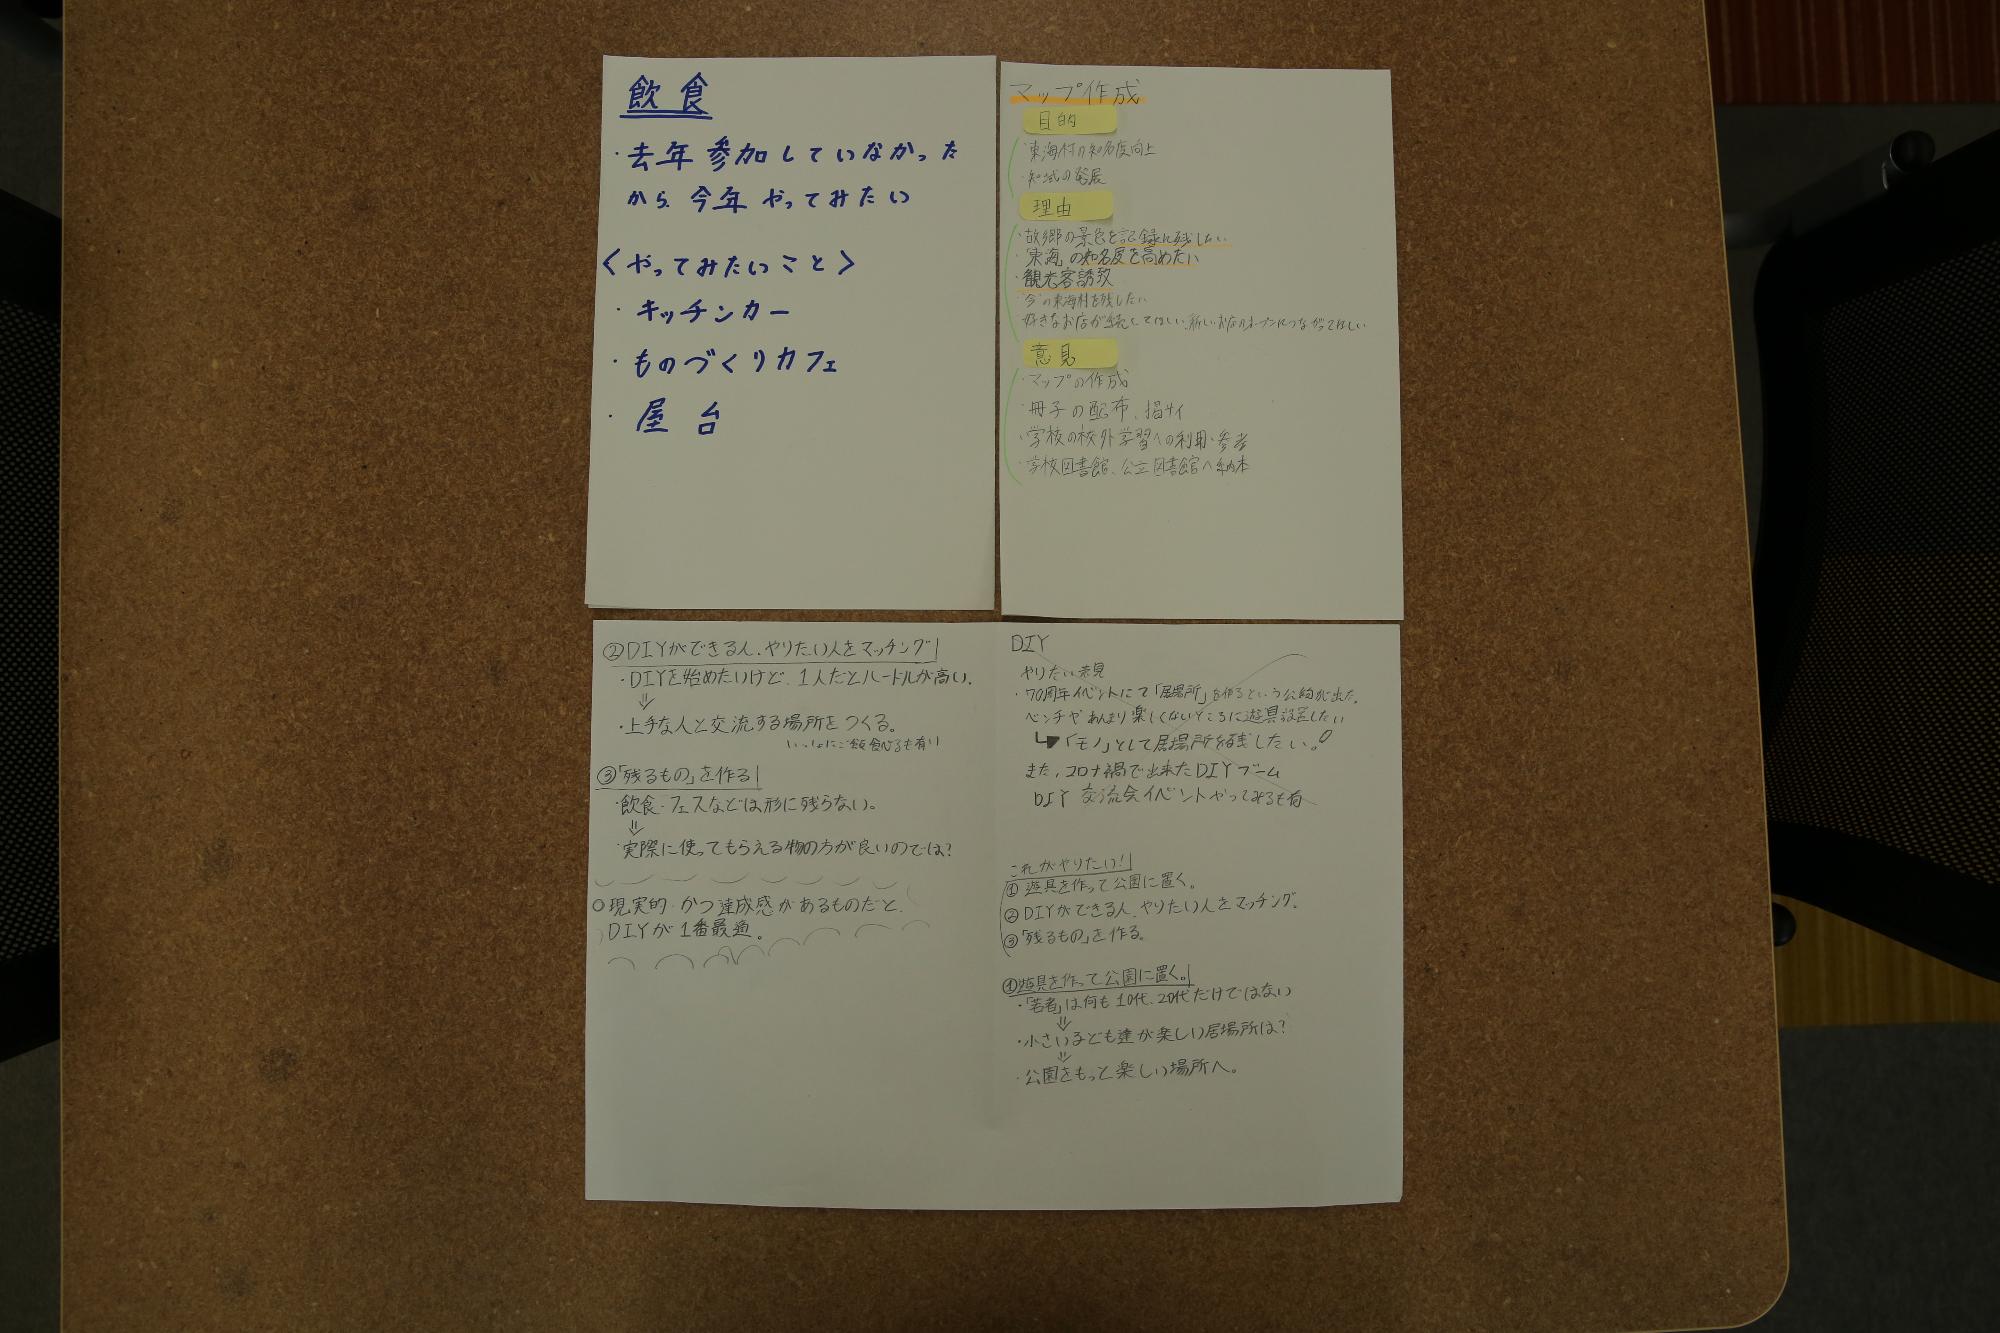 飲食
・去年参加していなかった
から今年やってみたい
<やってみたいこと>
・キッチンカー
・ものづくりカフェ
・屋台
マップ作成
目的
・東海村の知名度向上
・知域の発展
理由
・故郷の景色を記録に残したい
・東海の知名度を高めたい
・観光客誘致
・今の東海村を残したい
・好きなお店が続いてほしい、新しいお店のオープンにつながってほしい
意見
・マップの作成
・冊子の配布、掲サイ
・学校の校外学習への利用・参考
・学校図書館、公立図書館へ納本
②DIYができる人、やりたい人をマッチング
・DIYを始めたいけど、1人だとハードルが高い。
⇓
・上手な人と交流する場所をつくる。
いっしょにご飯食べるも有り
③「残るもの」を作る
・飲食・フェスなどは形に残らない。
⇓
・実際に使ってもらえる物の方が良いのでは?
○現実的かつ達成感があるものだと、
DIYが1番最適。
DIY
やりたい意見
・70周年イベントにて「居場所」を作るという公約が出た。
ベンチやあんまり楽しくないところに遊具設置したい
↳「モノ」として居場所を残したい。!
また、コロナ禍で出来たDIYブーム
DIY 交流会イベントやってみるも有
これがやりたい!
①遊具を作って公園に置く。
②DIYができる人、やりたい人をマッチング。
③「残るもの」を作る。
①遊具を作って公園に置く。
・「若者」は何も10代、20代だけではない
⇓
・小さい子ども達が楽しい居場所は?
⇓
・公園をもっと楽しい場所へ。